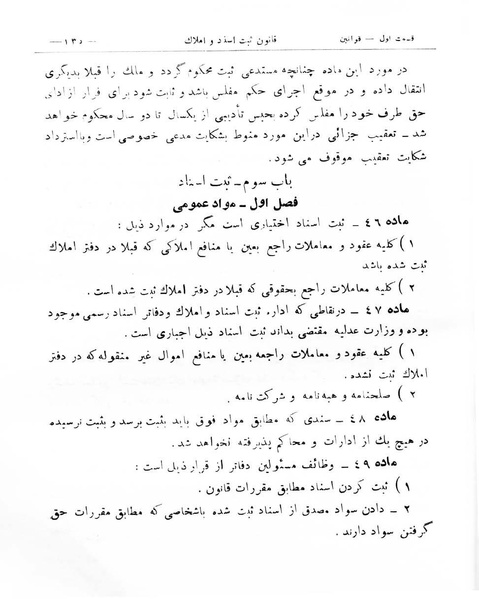 قسمت اول — قوانین قانون ثبت اسناد و املاك — ۱۳۵ —
در مورد این ماده چنانچه مستدعی ثبت محكوم گردد و ملك را قبلا بدیگری
انتقال داده و در موقع اجرای حكم مفلس باشد و ثابت شود برای فرار از ادای
حق طرف خود را مفلس كرده بحبس تأدیبی از یكسال تا دو سال محكوم خواهد
شد ـ تعقیب جزائی دراین مورد منوط بشكایت مدعی خصوصی است وبااسترداد
شكایت تعقیب موقوف می شود.
باب سوم ـ ثبت اسناد
فصل اول ـ مواد عمومی
ماده ٤٦ ـ ثبت اسناد اختیاری است مگر در موارد ذیل :
۱ ) كلیه عقود و معاملات راجع بعین یا منافع املاكی كه قبلا در دفتر املاك
ثبت شده باشد
۲ ) كلیه معاملات راجع بحقوقی كه قبلا در دفتر املاك ثبت شده است .
ماده ٤۷ ـ درنقاطی كه اداره ثبت اسناد و املاك ودفاتر اسناد رسمی موجود
بوده و وزارت عدلیه مقتضی بداند ثبت اسناد ذیل اجباری است .
۱ ) كلیه عقود و معاملات راجعه بعین یا منافع اموال غیر منقوله كه در دفتر
املاك ثبت نشده.
۲ ) صلحنامه و هبه نامه و شركت نامه .
ماده ٤۸ ـ سندی كه مطابق مواد فوق باید بثبت برسد و بثبت نرسیده
در هیچ یك از ادارات و محاكم پذیرفته نخواهد شد.
ماده ٤۹ ـ وظائف مسئولین دفاتر از قرار ذیل است :
۱ ) ثبت كردن اسناد مطابق مقررات قانون .
۲ ـ دادن سواد مصدق از اسناد ثبت شده باشخاصی كه مطابق مقررات حق
گرفتن سواد دارند .